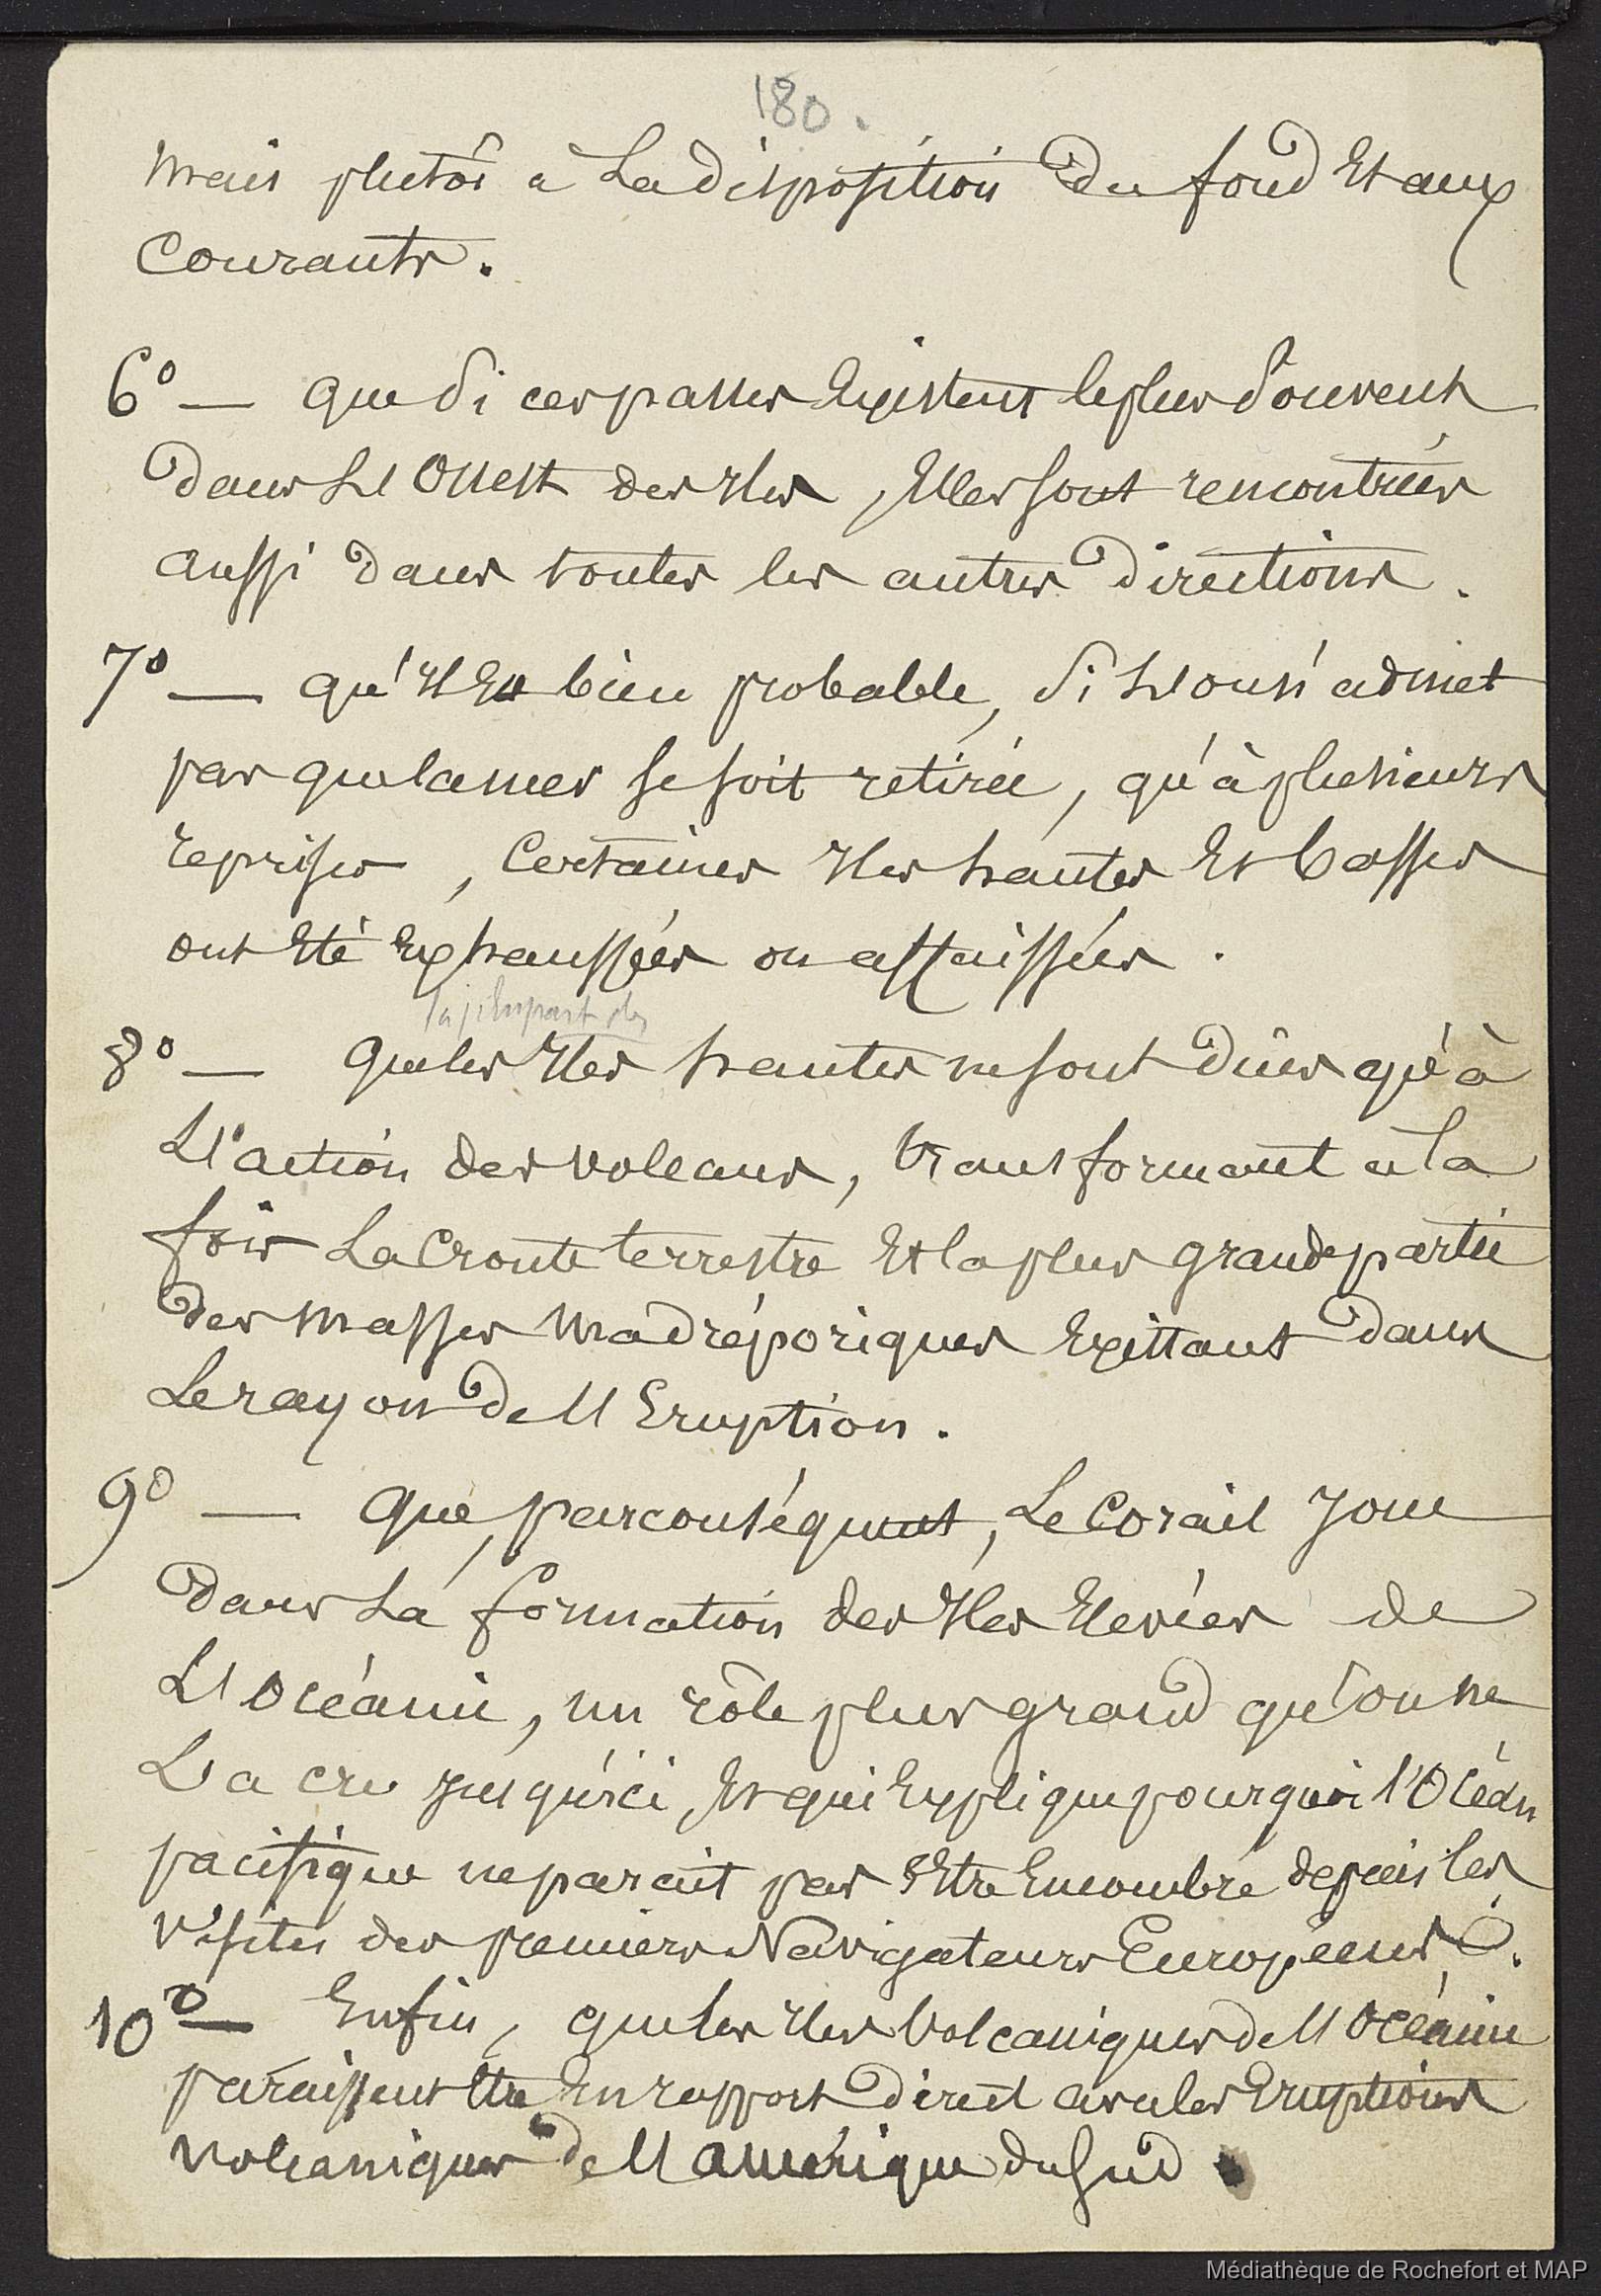 180.
mais plutôt à la disposition du fond et aux
courants.
6° — que si ces passes existent le plus souvent
dans l'Ouest des Iles, Elles sont rencontrées
aussi dans toutes les autres directions.
7° — qu'il est bien probable, si l'on n'admet
pas que la mer se soit retirée, qu'à plusieurs
reprises, certaines Iles hautes et basses
ont été exhaussées ou affaissées.
la plupart des
8° — que les Iles hautes ne sont dûes qu'à
l'action des volcans, transformant à la
fois la croute terrestre et la plus grande partie
des masses madréporiques existant dans
le rayon de l'Eruption.
9° — que, par conséquent, le Corail joue
dans la formation des Iles Elevées de
l'Océanie, un rôle plus grand qu'on ne
l'a cru jusqu'ici, et qui Explique pourquoi l'Océan
pacifique ne parait pas s'Etre Encombré depuis les
visites des premiers Navigateurs Européens.
10° — Enfin, que les Iles Volcaniques de l'Océanie
paraissent Etre En rapport direct avec les Eruptions
volcaniques de l'Amérique du Sud.
Médiathèque de Rochefort et MAP